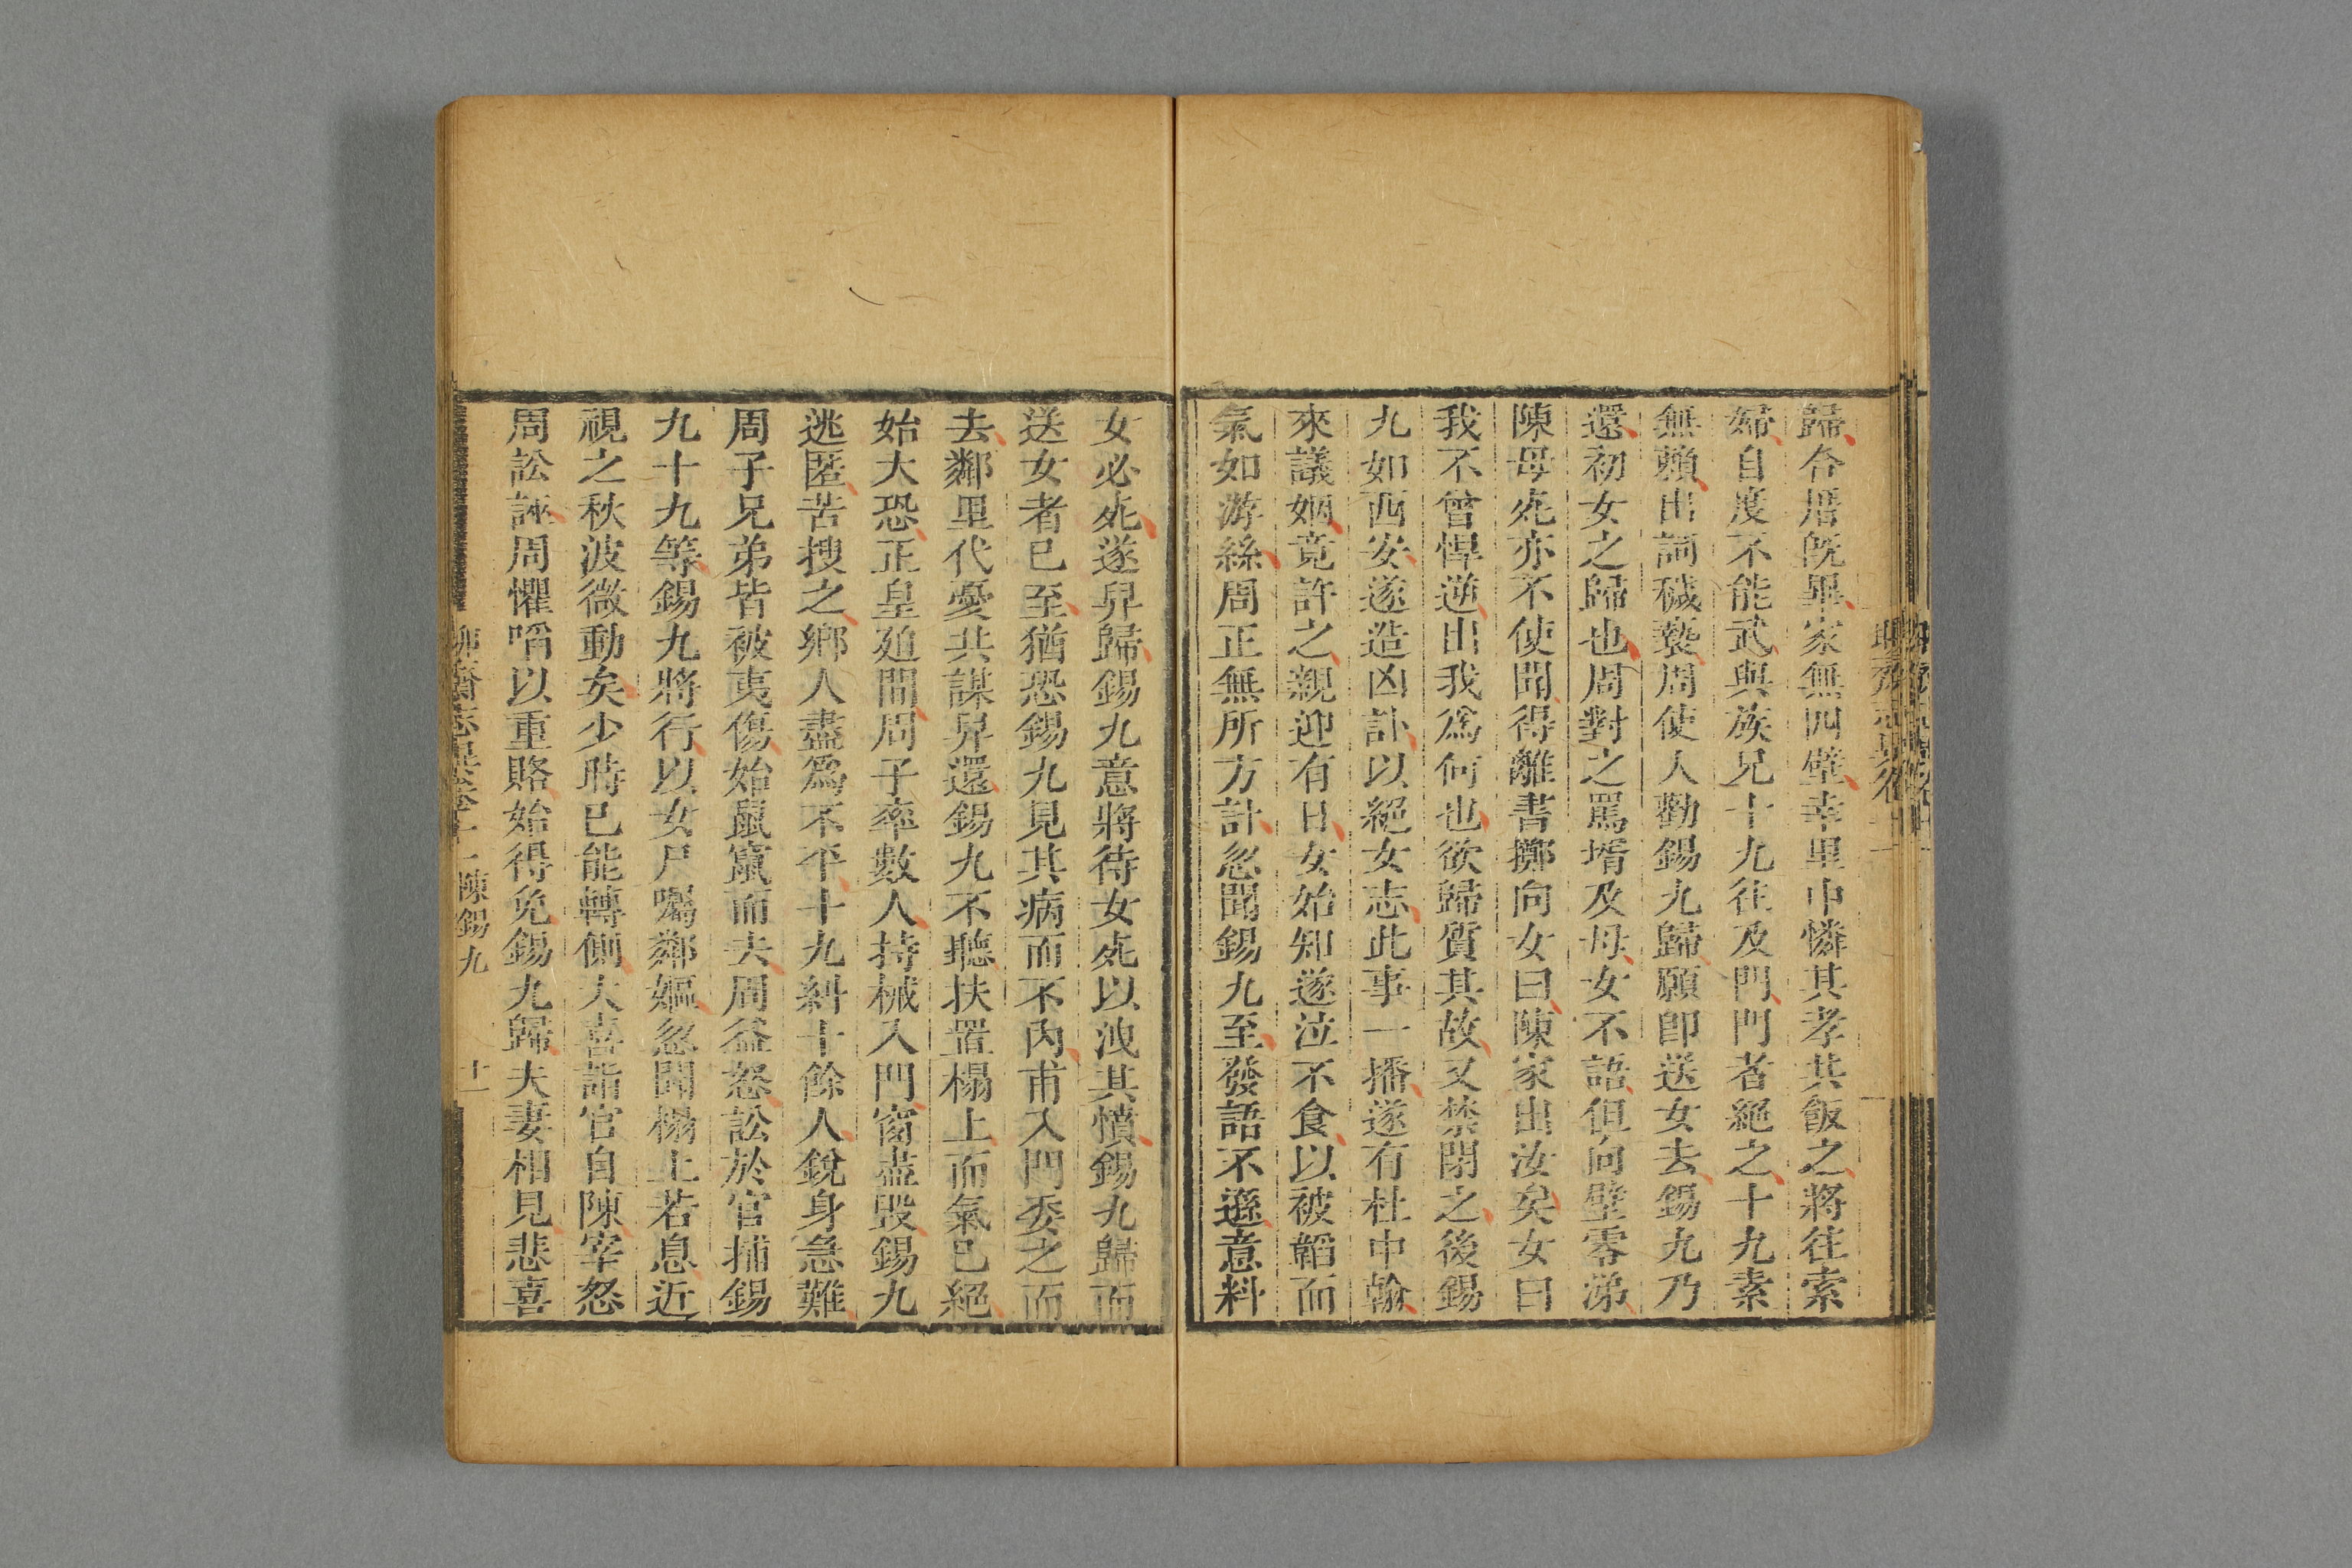 歸合厝旣畢家無四壁幸里中憐其孝共飯之將往索
婦自度不能武與族兄十九往及門門者絕之十九素
無賴出詞穢褻周使人勸錫九歸願卽送女去錫九乃
還初女之歸也周對之罵壻及母女不語但向壁零涕
陳母死亦不使聞得離書擲向女曰陳家出汝矣女曰
我不曾悍逆出我爲何也欲歸質其故又禁閉之後錫
九如西安遂造凶訃以絕女志此事一播遂有杜中翰
來議姻竟許之親迎有日女始知遂泣不食以被韜而
氣如游絲周正無所方計忽聞錫九至發語不遜意料
女必死遂舁歸錫九意將待女死以洩其憤錫九歸而
送女者已至猶恐錫九見其病而不內甫入門委之而
去鄰里代憂共謀舁還錫九不聽扶置榻上而氣已絕
始大恐正皇廹間周子率數人持械入門窗盡毀錫九
逃匿苦搜之鄉人盡爲不平十九糾十餘人銳身急難
周子兄弟皆被夷傷始鼠竄而去周益怒訟於官捕錫
九十九等錫九將行以女尸囑鄰嫗忽聞榻上若息近
視之秋波微動矣少時已能轉側大喜詣官自陳宰怒
周訟誣周懼啗以重賂始得免錫九歸夫妻相見悲喜
聊齋志異卷十一 陳錫九 十一